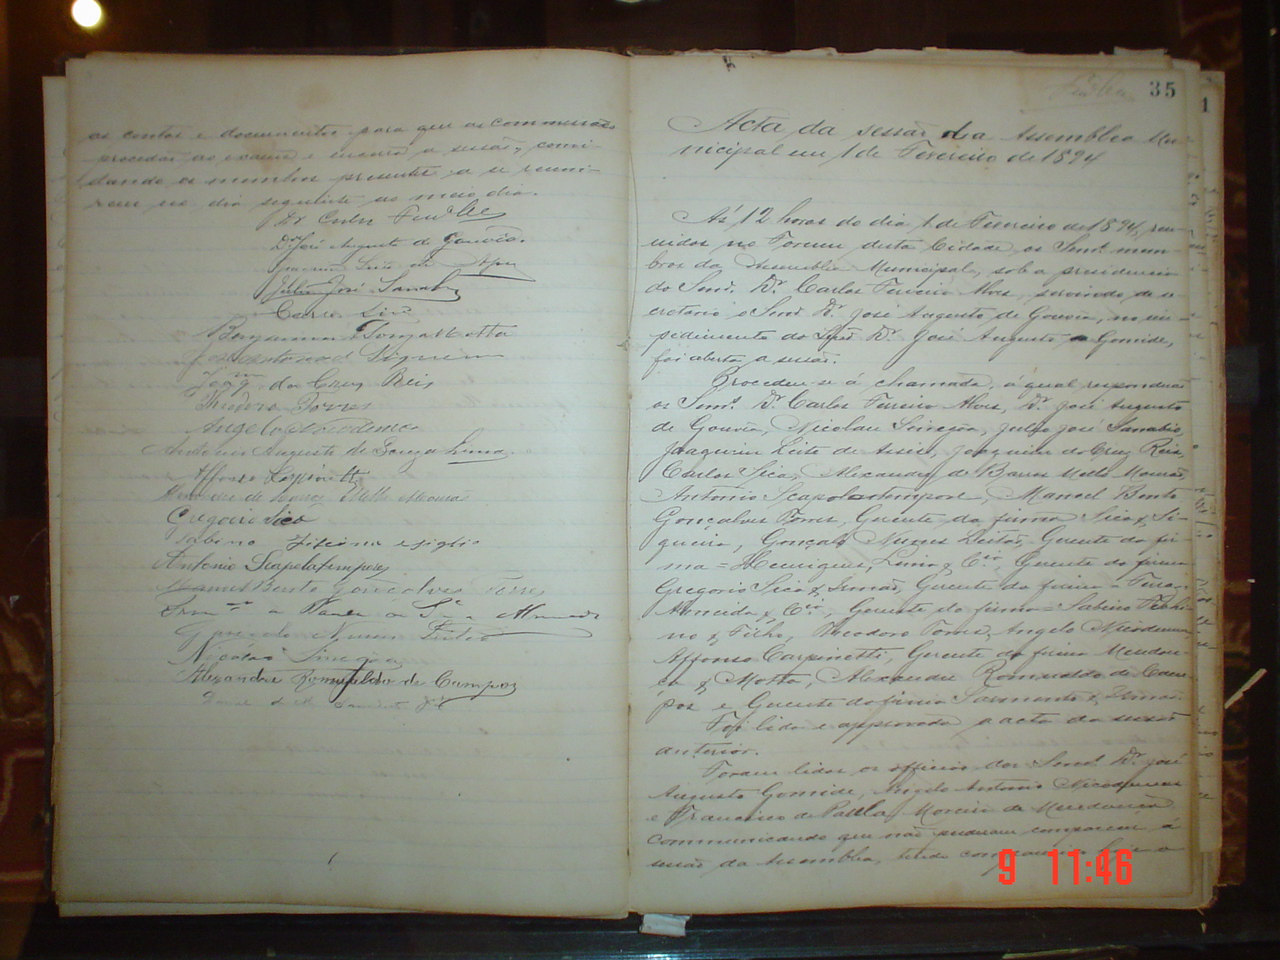 as contas e documentos para que as commissões
procedão ao exame e encerra a sessão, convi-
dando os membros presentes a se reuni-
rem no dia seguinte ao meio dia.
Dr Carlos
Dr José Augusto de Gouvêa.
Joaquim Leite de Assis
Julio José Sanabio
Carlos Sica
Benjamim Motta
Joaqm da Cruz Reis
Theodoro Torres
Angelo Nicodemo
Antonio Augusto de Souza Lima
Affonso Carpinetti
Alexandre de Barros Mello Mourão
Gregorio Sica
Sabino e figlio
Antonio Scapolatempore
Manuel Bento Gonçalves Torres
Gonçalo Nunes Leitão
Nicolao
Alexandre Romualdo de Campos
35
1
Acta da sessão da Assemblea Mu-
nicipal em 1 de Fevereiro de 1894
Ás 12 horas do dia 1 de Fevereiro de 1894, reu-
nidos no Forum desta Cidade, os Senrs. mem-
bros da Assemblea Municipal, sob a presidencia
do Senr. Dr. Carlos Ferreira Alves, servindo de se-
cretario o Senr. Dr. José Augusto de Gouvêa, no im-
pedimento do Senr. Dr. José Augusto Gomide,
foi aberta a sessão.
Procedeu-se á chamada, á qual responderão
os Senrs. Dr. Carlos Ferreira Alves, Dr. José Augusto
de Gouvêa, Nicolau, Julio José Sanabio,
Joaquim Leite de Assis, Joaquim da Cruz Reis,
Carlos Sica, Alexandre de Barros Mello Mourão,
Antonio Scapolatempore, Manoel Bento
Gonçalves Torres, Gerente da firma Sica & Si-
queira, Gonçalo Nunes Leitão, Gerente da fir-
ma = Henriques, Lima & Cia, Gerente da firma
Gregorio Sica & Irmão, Gerente da firma
Almeida & Cia, Gerente da firma = Sabino
& Filho, Theodoro Torres, Angelo Nicodemo
Affonso Carpinetti, Gerente da firma Mendon-
ça & Motta, Alexandre Romualdo de Cam-
pos e Gerente da firma Sarmento & Irmão.
Foi lida e approvada a acta da sessão
anterior.
Foram lidos os officios dos Senrs. Dr. José
Augusto Gomide, Angelo Antonio Nicodemo
e Francisco de Paula Moreira de Mendonça
communicando que não puderam comparecer á
sessão da Assemblea, tendo
9 11:46